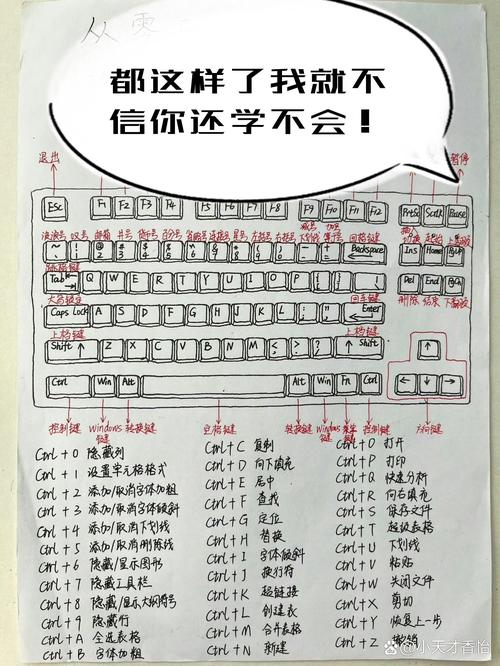 从零
都这样了我就不
信你还学不会！
退出
暂停
Esc F1 F2 F3 F4 F5 F6 F7 F8 F9 F10 Fn F12 PrtSc ScrLk Pause
波浪号 叹号 邮箱 井号 货币号 百分号 省略号 连接号 星号 左括号 右括号 下划线 加号 等于号 回格键
减号
插入
切换 起始 上翻被
~ ! @ 2 # 3 $ 4 % 5 ^ 6 & 7 * 8 ( 9 ) 0 Backspace Ins Home PgUp
Tab Q W E R T Y U I O P Del End PgDn
大写锁定
回车键
删除 结束 下翻被
Caps Lock A S D F G H J K L Enter
上档键
上档键
Shift Z X C V B N M Shift
Ctrl Win Alt Alt Win Fn Ctrl
控制键 Windows键 转换键 空格键 转换键 Windows键 菜单键 控制键 方向键
Ctrl + 0 隐藏列
Ctrl + 1 设置单元格格式
Ctrl + 2 添加/取消字体加粗
Ctrl + 3 添加/取消字体倾斜
Ctrl + 4 添加/取消下划线
Ctrl + 5 添加/取消删除线
Ctrl + 6 隐藏/显示图形
Ctrl + 7 隐藏工具栏
Ctrl + 8 隐藏/显示大纲符号
Ctrl + 9 隐藏行
Ctrl + A 全选表格
Ctrl + B 字体加粗
Ctrl + C 复制
Ctrl + D 向下填充
Ctrl + E 居中
Ctrl + F 查找
Ctrl + G 定位
Ctrl + H 替换
Ctrl + I 字体倾斜
Ctrl + J 换行符
Ctrl + K 超链接
Ctrl + L 创建表
Ctrl + M 合并表格
Ctrl + N 新建
Ctrl + O 打开
Ctrl + P 打印
Ctrl + Q 快速分析
Ctrl + R 向右填充
Ctrl + S 保存文件
Ctrl + T 超级表格
Ctrl + U 下划线
Ctrl + V 粘贴
Ctrl + W 关闭文件
Ctrl + X 剪切
Ctrl + Y 恢复上一步
Ctrl + Z 撤销
@小天才香怡